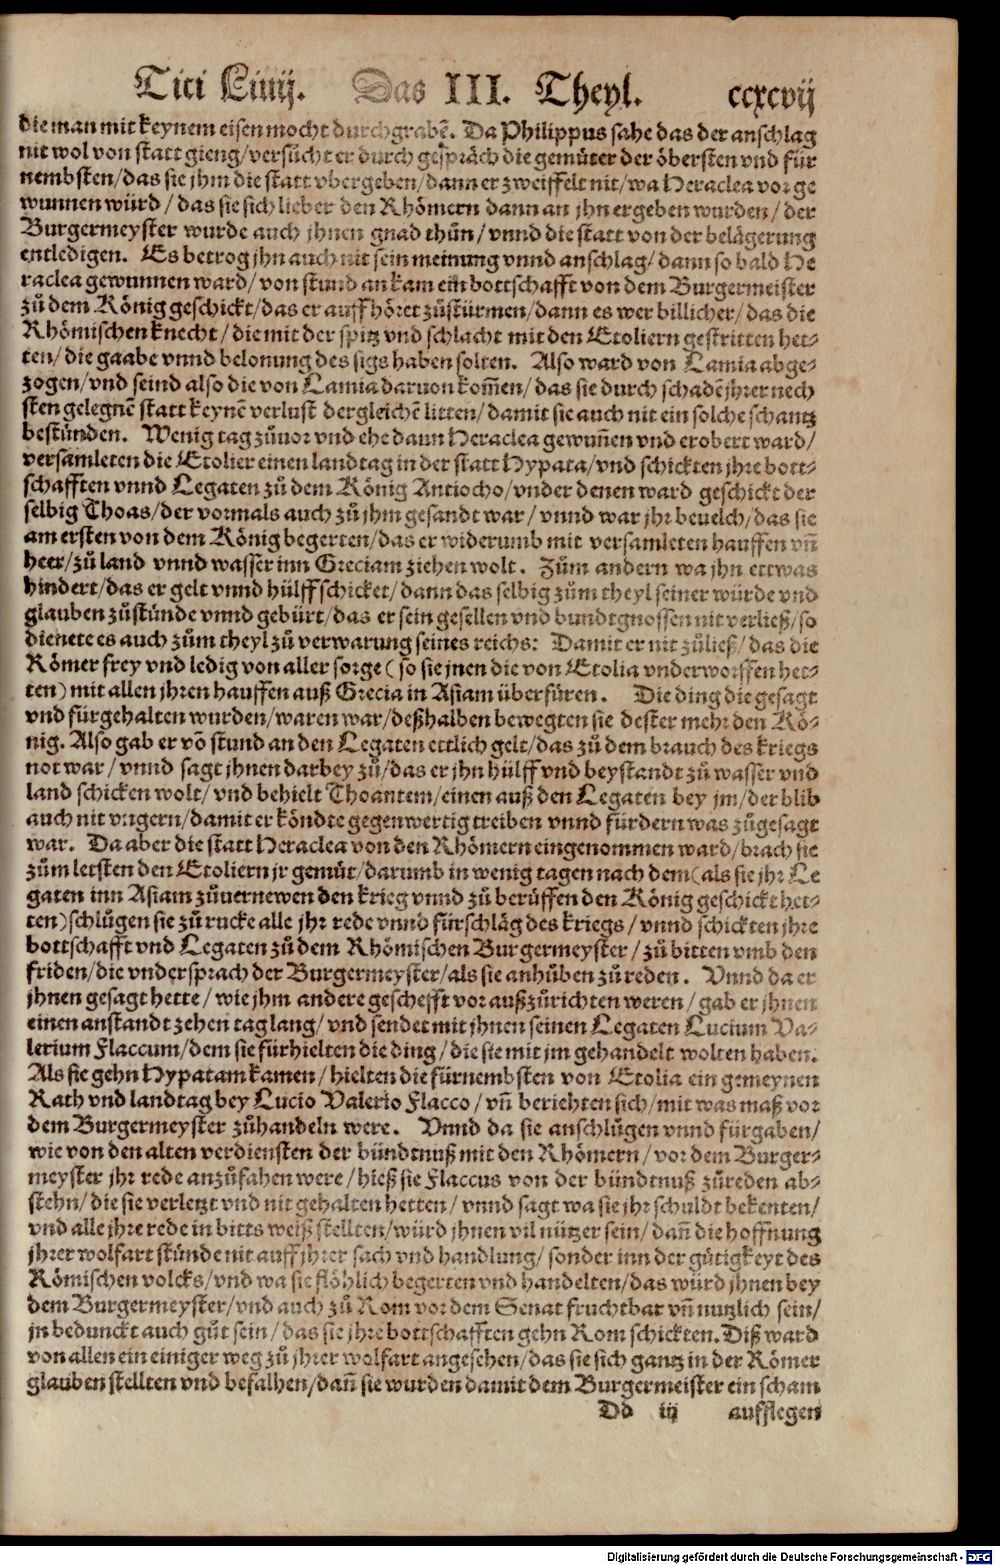 Titi Liuij. Das III. Theyl. ccxcvij
die man mit keynem eisen mocht durchgrabē. Da Philippus sahe das der anschlag
nit wol von statt gieng/versůcht er durch gespräch die gemüter der öbersten vnd für
nembsten/das sie jhm die statt vbergeben/dann er zweiffelt nit/wa Heraclea vor ge
wunnen würd/das sie sich lieber den Rhömern dann an jhn ergeben wurden/der
Burgermeyster wurde auch jhnen gnad thůn/vnnd die statt von der belägerung
entledigen. Es betrog jhn auch nit sein meinung vnnd anschlag/dann so bald He
raclea gewunnen ward/von stund an kam ein bottschafft von dem Burgermeister
zů dem König geschickt/das er auff höret zůstürmen/dann es wer billicher/das die
Rhömischen knecht/die mit der spitz vnd schlacht mit den Etoliern gestritten het-
ten/die gaabe vnnd belonung des sigs haben solten. Also ward von Lamia abge-
zogen/vnd seind also die von Lamia daruon kom̄en/das sie durch schadē jhrer nech
sten gelegnē statt keynē verlust dergleichē litten/damit sie auch nit ein solche schantz
bestünden. Wenig tag zůuor vnd ehe dann Heraclea gewun̄en vnd erobert ward/
versamleten die Etolier einen landtag in der statt Hypata/vnd schickten jhre bott-
schafften vnnd Legaten zů dem König Antiocho/vnder denen ward geschickt der
selbig Thoas/der vormals auch zů jhm gesandt war/vnnd war jhr beuelch/das sie
am ersten von dem König begerten/das er widerumb mit versamleten hauffen vn̄
heer/zů land vnnd wasser inn Greciam ziehen wolt. Zům andern wa jhn ettwas
hindert/das er gelt vnnd hülff schicket/dann das selbig zům theyl seiner würde vnd
glauben zůstünde vnnd gebürt/das er sein gesellen vnd bundtgnossen nit verließ/so
dienete es auch zům theyl zů verwarung seines reichs: Damit er nit zůließ/das die
Römer frey vnd ledig von aller sorge (so sie jnen die von Etolia vnderworffen het-
ten) mit allen jhren hauffen auß Grecia in Asiam überfüren. Die ding die gesagt
vnd fürgehalten wurden/waren war/deßhalben bewegten sie dester mehr den Kö-
nig. Also gab er vō stund an den Legaten ettlich gelt/das zů dem brauch des kriegs
not war/vnnd sagt jhnen darbey zů/das er jhn hülff vnd beystandt zů wasser vnd
land schicken wolt/vnd behielt Thoantem/einen auß den Legaten bey jm/der blib
auch nit vngern/damit er köndte gegenwertig treiben vnnd fürdern was zůgesagt
war. Da aber die statt Heraclea von den Rhömern eingenommen ward/brach sie
zům letsten den Etoliern jr gemüt/darumb in wenig tagen nach dem (als sie jhr Le
gaten inn Asiam zůuernewen den krieg vnnd zů berüffen den König geschickt het-
ten) schlůgen sie zů rucke alle jhr rede vnnd fürschläg des kriegs/vnnd schickten jhre
bottschafft vnd Legaten zů dem Rhömischen Burgermeyster/zů bitten vmb den
friden/die vndersprach der Burgermeyster/als sie anhůben zů reden. Vnnd da er
jhnen gesagt hette/wie jhm andere geschefft vor außzůrichten weren/gab er jhnen
einen anstandt zehen tag lang/vnd sendet mit jhnen seinen Legaten Lucium Va-
lerium Flaccum/dem sie fürhielten die ding/die sie mit jm gehandelt wolten haben.
Als sie gehn Hypatam kamen/hielten die fürnembsten von Etolia ein gemeynen
Rath vnd landtag bey Lucio Valerio Flacco/vn̄ berichten sich/mit was maß vor
dem Burgermeyster zůhandeln were. Vnnd da sie anschlůgen vnnd fürgaben/
wie von den alten verdiensten der bündtnuß mit den Rhömern/vor dem Burger-
meyster jhr rede anzůfahen were/hieß sie Flaccus von der bündtnuß zůreden ab-
stehn/die sie verletzt vnd nit gehalten hetten/vnnd sagt wa sie jhr schuldt bekenten/
vnd alle jhre rede in bitts weiß stellten/würd jhnen vil nützer sein/dan̄ die hoffnung
jhrer wolfart stünde nit auff jhrer sach vnd handlung/sonder inn der gütigkeyt des
Römischen volcks/vnd wa sie flöhlich begerten vnd handelten/das würd jhnen bey
dem Burgermeyster/vnd auch zů Rom vor dem Senat fruchtbar vn̄ nutzlich sein/
jn bedunckt auch gůt sein/das sie jhre bottschafften gehn Rom schickten. Diß ward
von allen ein einiger weg zů jhrer wolfart angesehen/das sie sich gantz in der Römer
glauben stellten vnd befalhen/dan̄ sie wurden damit dem Burgermeister ein scham
Dd iij aufflegen
Digitalisierung gefördert durch die Deutsche Forschungsgemeinschaft - DFG